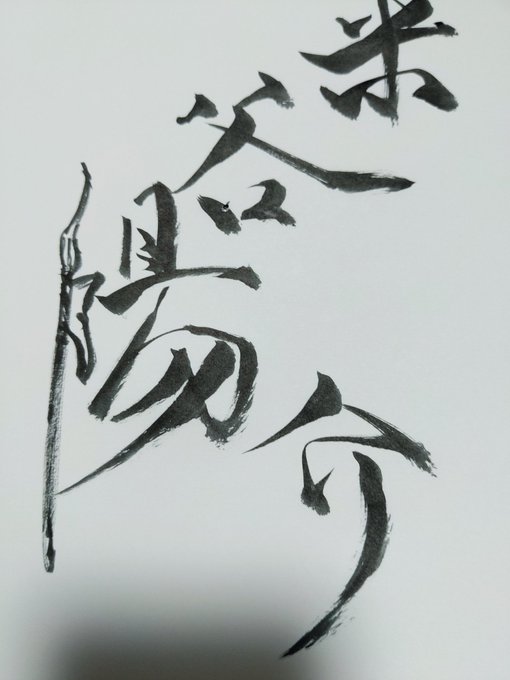 米谷陽介